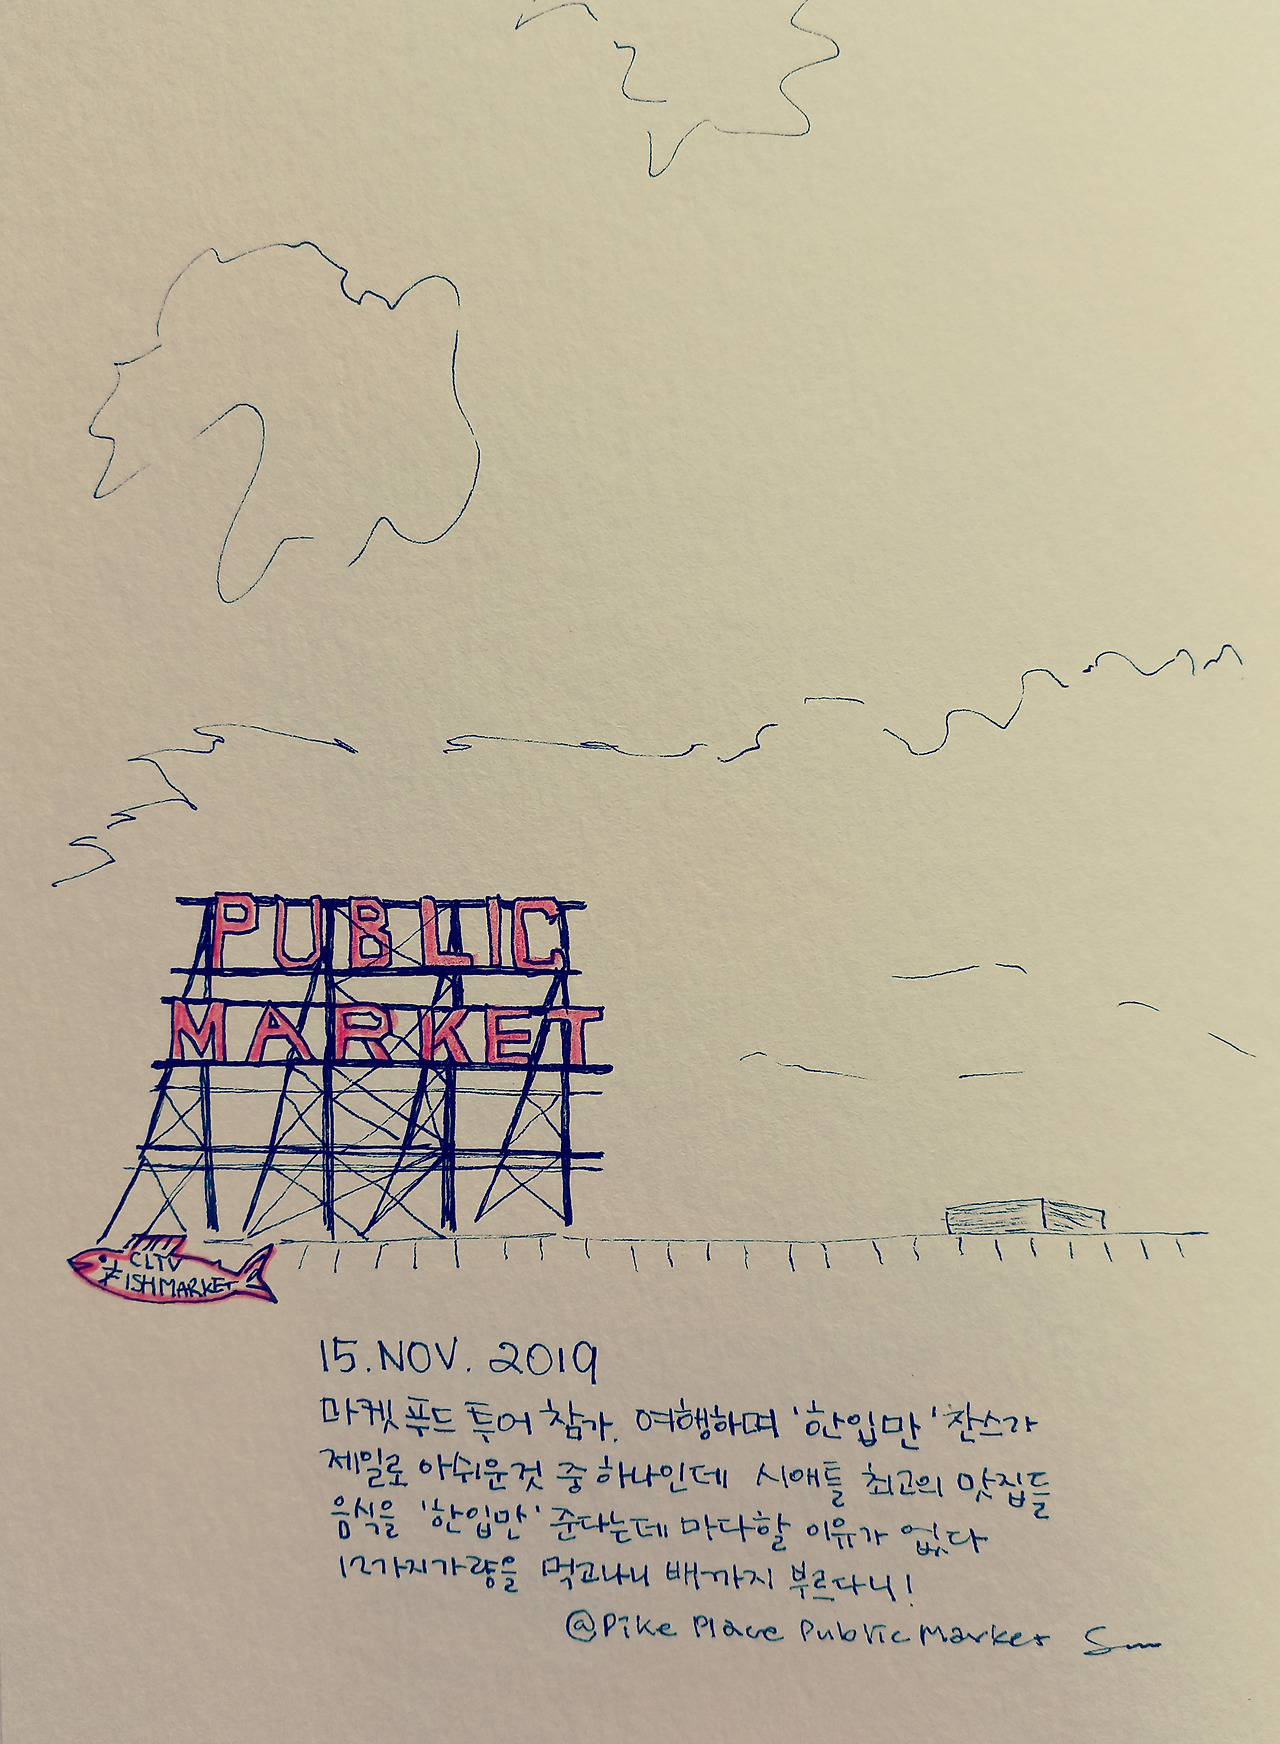 PUBLIC
MARKET
CITY
FISH MARKET
15. NOV. 2019
마켓 푸드 투어 참가. 여행하며 '한입만' 찬스가
제일로 아쉬운것 중 하나인데 시애틀 최고의 맛집들
음식을 '한입만' 준다는데 마다할 이유가 없다
12가지가량을 먹고나니 배까지 부르다니!
@Pike Place Public Market